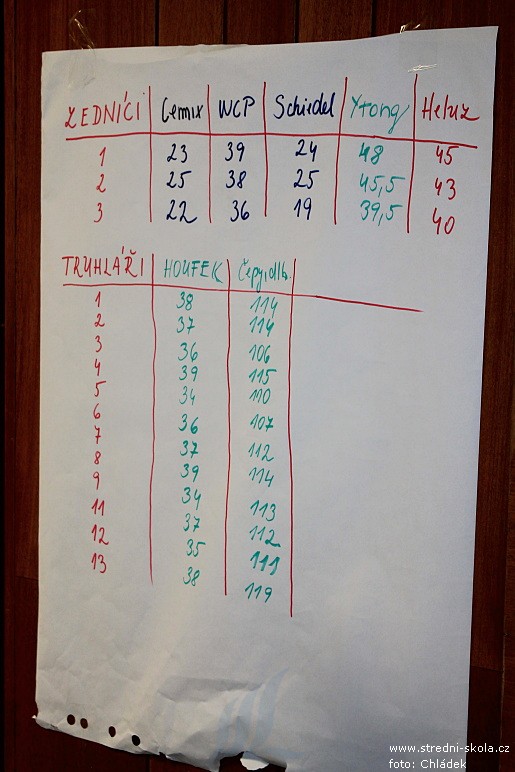 ZEDNÍCI Cemix WCP Schiedel Ytong Heluz
1 23 39 24 48 45
2 25 38 25 45,5 43
3 22 36 19 39,5 40
TRUHLÁŘI HOUFEK Čepy,dlb.
1 38 114
2 37 114
3 36 106
4 39 115
5 34 110
6 36 107
7 37 112
8 39 114
9 34 113
11 37 112
12 35 111
13 38 119
www.stredni-skola.cz
foto: Chládek